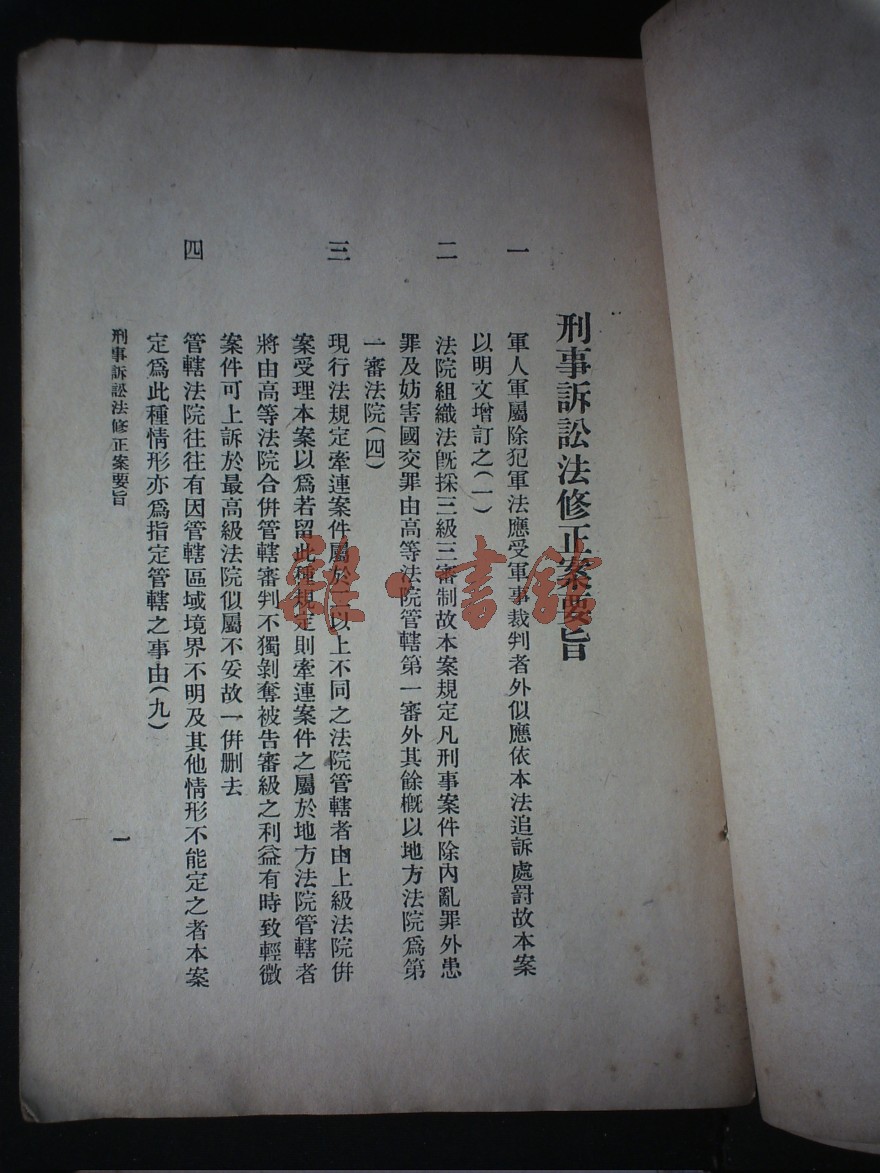 刑事訴訟法修正案要旨
一
軍人軍屬除犯軍法應受軍事裁判者外似應依本法追訴處罰故本案
以明文增訂之(一)
二
法院組織法旣採三級三審制故本案規定凡刑事案件除內亂罪外患
罪及妨害國交罪由高等法院管轄第一審外其餘槪以地方法院爲第
一審法院(四)
三
現行法規定牽連案件屬於二以上不同之法院管轄者由上級法院倂
案受理本案以爲若留此種規定則牽連案件之屬於地方法院管轄者
將由高等法院合倂管轄審判不獨剝奪被告審級之利益有時致輕微
案件可上訴於最高級法院似屬不妥故一倂刪去
四
管轄法院往往有因管轄區域境界不明及其他情形不能定之者本案
定爲此種情形亦爲指定管轄之事由(九)
刑事訴訟法修正案要旨
一
雜·書館